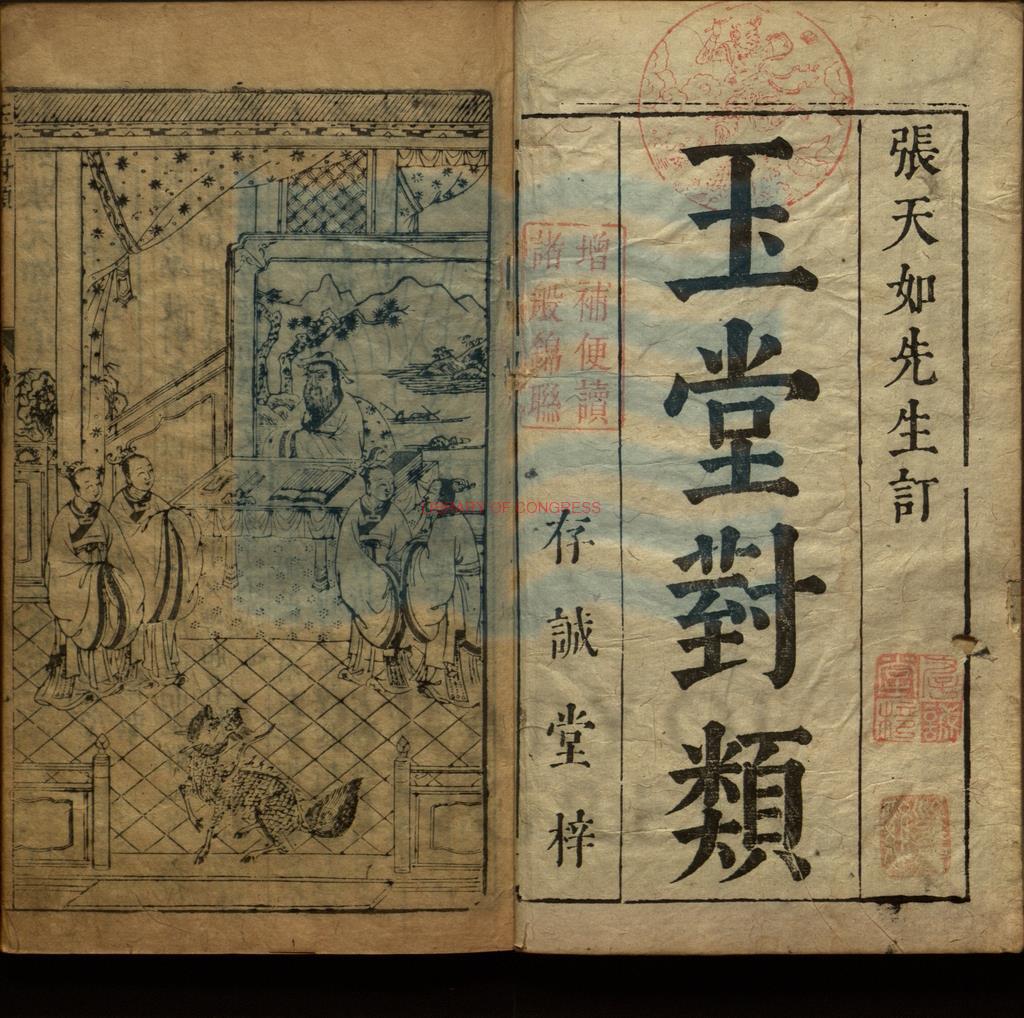 張天如先生訂
玉堂對類
增補便讀
諸般錦聯
存誠堂梓
LIBRARY OF CONGRESS